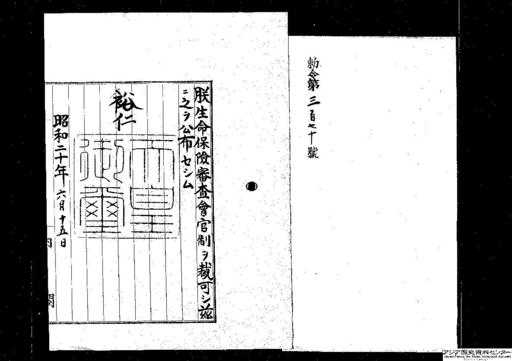 勅令第三百七十號
朕生命保險審査會官制ヲ裁可シ茲
ニ之ヲ公布セシム
裕仁
天皇御璽
昭和二十年六月十五日
内閣
アジア歴史資料センター